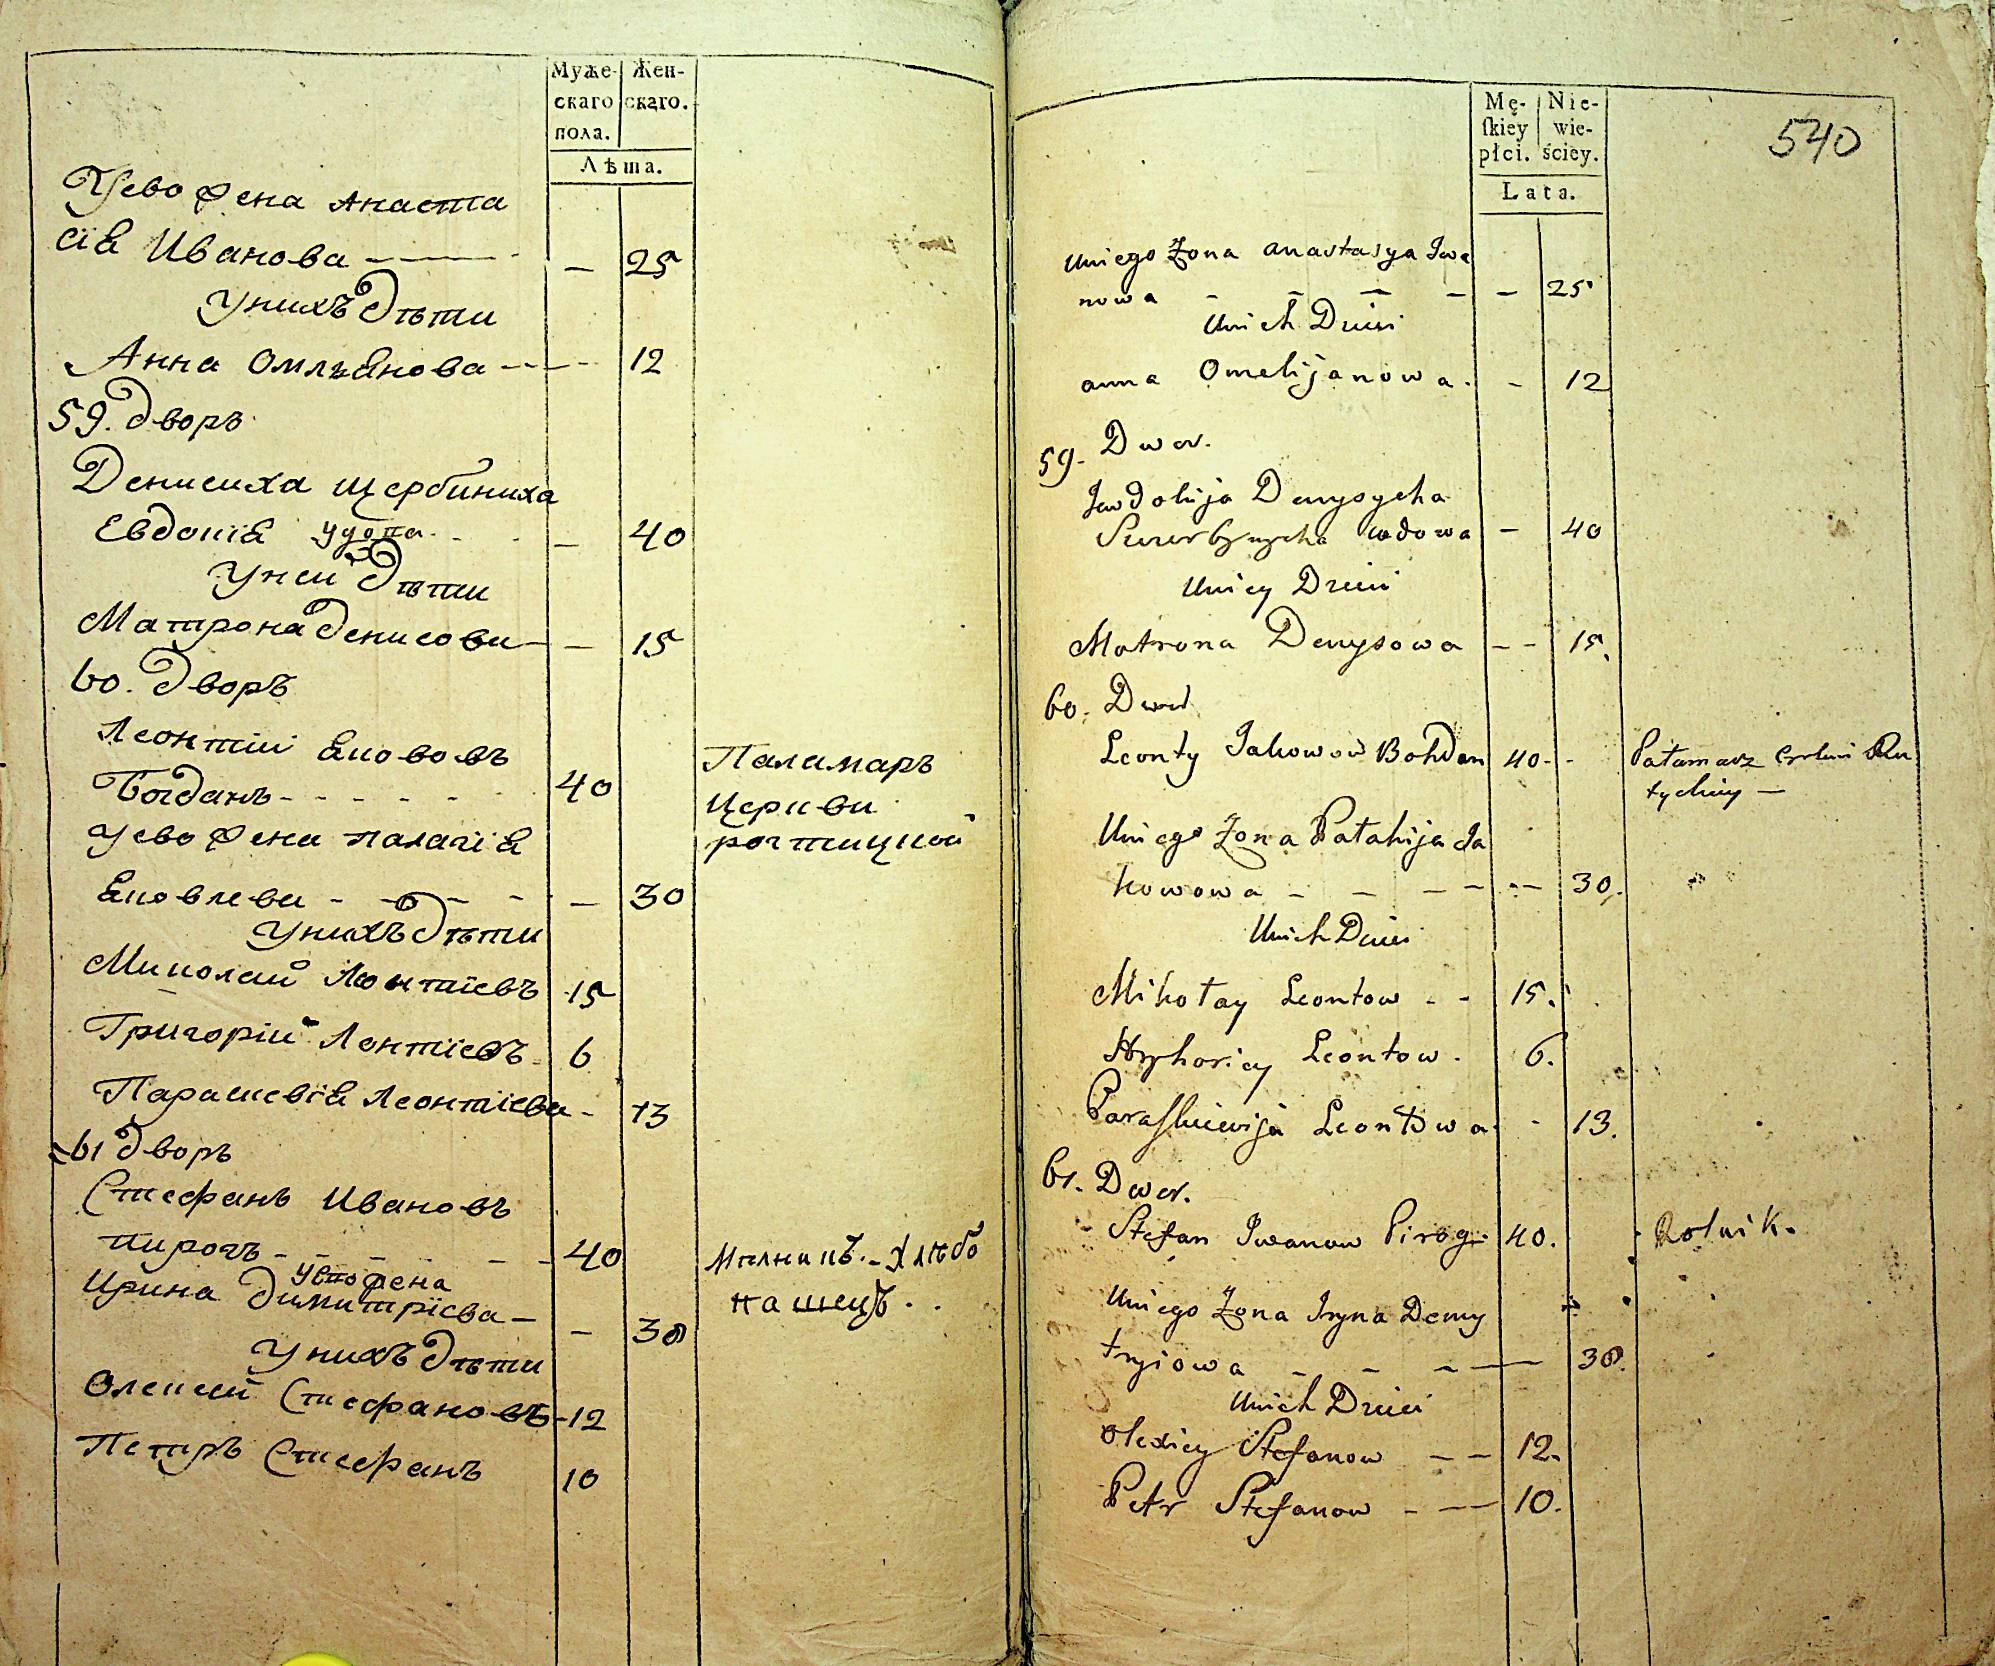 Муже-
скаго
пола.
Жен-
скаго.
Лѣта.
Уево Жена Анаста
сїя Иванова — 25
Унихъ Дѣти
Анна Омляянова — 12
59. Дворъ
Денисиха Щербиниха
Евдокїя удова — 40
Унеи Дѣти
Матрона Денисова — 15
60. Дворъ
Леонтіи Якововъ
Богданъ - - - - 40
Паламаръ
Церкви
уево Жена палагїя
Яковлева - - - - — 30
Унихъ Дѣти
Миколай Леонтїевъ 15
Григоріи Леонтїевъ 6
Параскевїя Леонтїева - 13
61 Дворъ
Стефанъ Ивановъ
пирогъ - - - - 40
Хлѣбо
пашецъ.
уево жена
Ирина Димитрїева — — 38
Унихъ Дѣти
Олексей Стефановъ - 12
Петръ Стефанъ 10
540
Mę-
ſkiey
płci.
Nie-
wie-
ściey.
Lata.
Uniego Żona anastasya Iwa
nowa - - - - — 25
Unich Dzieci
anna Omelijanowa. - 12
59. Dwor.
Jewdokija Denysycha
Szczerbynycha wdowa - 40
Uniey Dzieci
Motrona Denysowa - - 15.
60. Dwor
Leonty Jakowow Bohdan 40. -
Pałamarz Cerkwi
Uniego Żona Pałahija Ja
kowowa - - - - - 30.
Unich Dzieci
Mikołay Leontow - - 15.
Hryhoriey Leontow. 6.
Paraſkiewija Leontowa. - 13.
61. Dwor.
Stefan Iwanow Pirog. 40.
Rolnik.
Uniego Żona Iryna Demy
tryiowa - - - — 38.
Unich Dzieci
Olexiey Stefanow - - 12.
Petr Stefanow - - - 10.